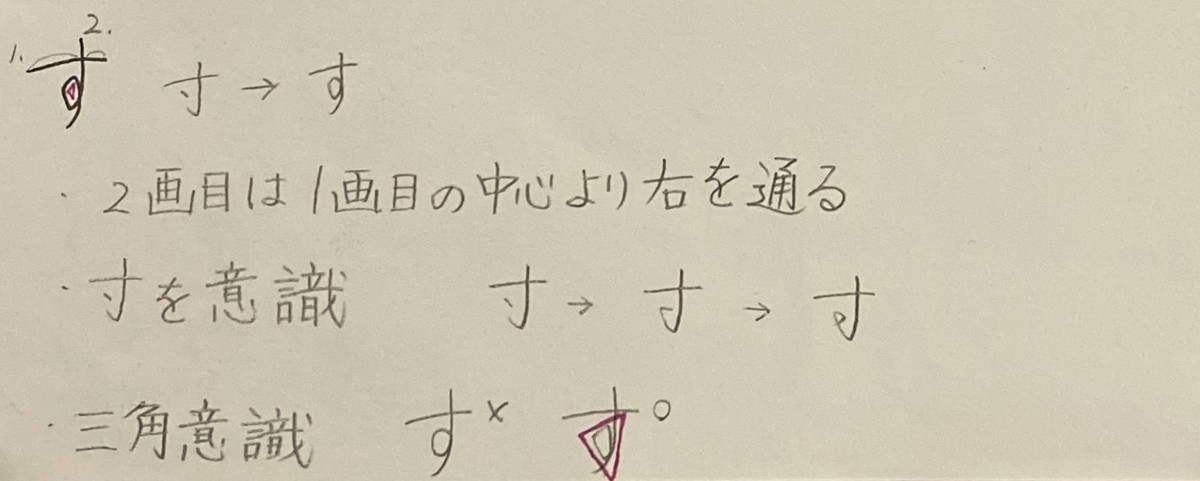 1. 2.
す 寸→す
・2画目は1画目の中心より右を通る
・寸を意識 寸→寸→寸
・三角意識 す× す○